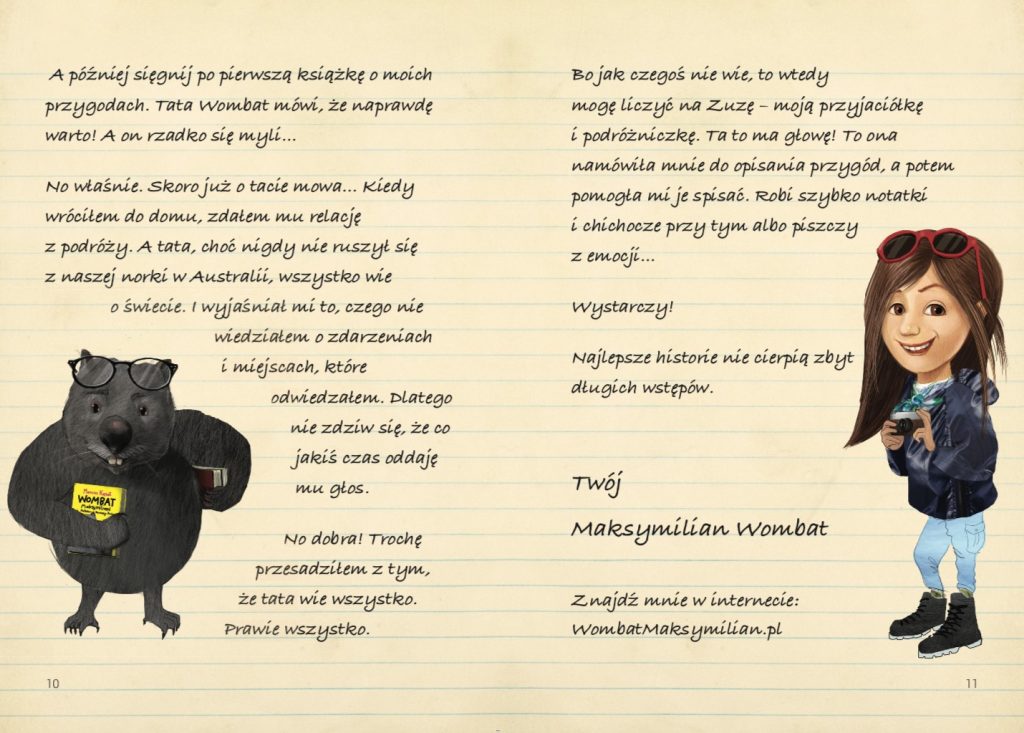 A później sięgnij po pierwszą książkę o moich
przygodach. Tata Wombat mówi, że naprawdę
warto! A on rzadko się myli...
No właśnie. Skoro już o tacie mowa... Kiedy
wróciłem do domu, zdałem mu relację
z podróży. A tata, choć nigdy nie ruszył się
z naszej norki w Australii, wszystko wie
o świecie. I wyjaśniał mi to, czego nie
wiedziałem o zdarzeniach
i miejscach, które
odwiedzałem. Dlatego
nie zdziw się, że co
jakiś czas oddaję
mu głos.
No dobra! Trochę
przesadziłem z tym,
że tata wie wszystko.
Prawie wszystko.
WOMBAT
10
Bo jak czegoś nie wie, to wtedy
mogę liczyć na Zuzę – moją przyjaciółkę
i podróżniczkę. Ta to ma głowę! To ona
namówiła mnie do opisania przygód, a potem
pomogła mi je spisać. Robi szybko notatki
i chichocze przy tym albo piszczy
z emocji...
Wystarczy!
Najlepsze historie nie cierpią zbyt
długich wstępów.
Twój
Maksymilian Wombat
Znajdź mnie w internecie:
WombatMaksymilian.pl
11